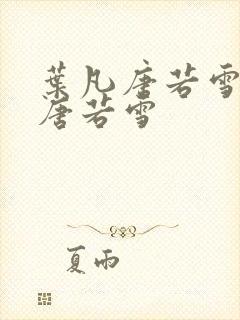 葉凡唐若雪
唐若雪
夏雨